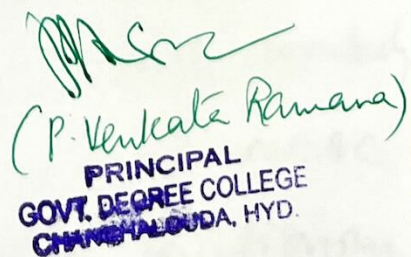 (P. Venkata Ramana)
PRINCIPAL
GOVT. DEGREE COLLEGE
CHANCHALGUDA, HYD.